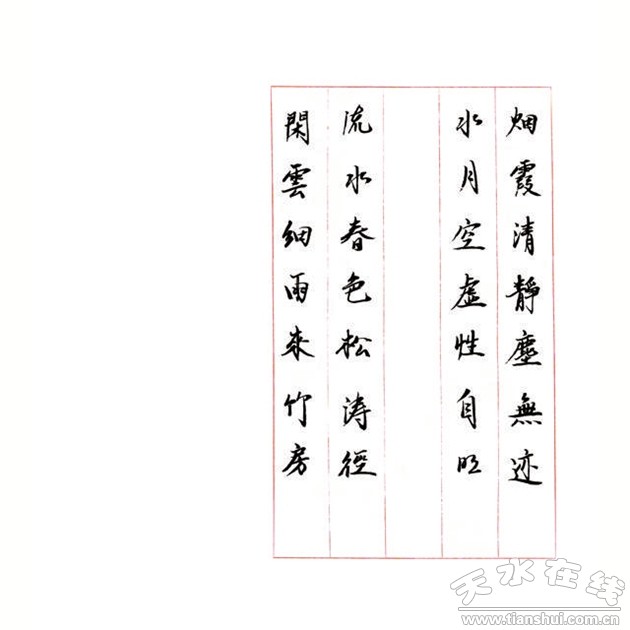 烟霞清靜塵無迹
水月空虛性自明
流水春色松涛徑
閑雲細雨來竹房
天水在线
www.tianshui.com.cn